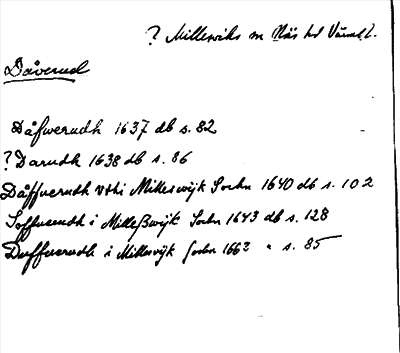 ? Millesviks sn Näs hd Värml.
Dåverud
Dåfwerudh 1637 db s. 82
? Darudh 1638 db s. 86
Dåffuerudh vthi Milleswijk Sochn 1640 db s. 102
Doffuerudh i Milleßwijk Sochn 1643 db s. 128
Duffuerudh i Millesvijk sochn 1662 " s. 85